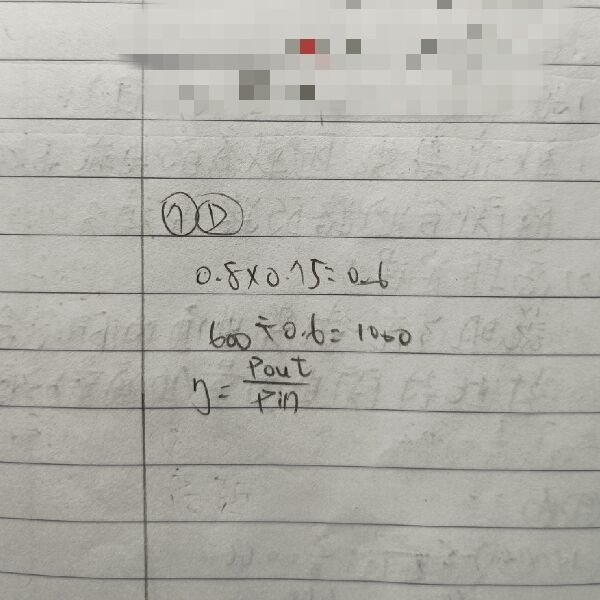 ⑦ D
0.8×0.75=0.6
600÷0.6=1000
η=Pout/Pin